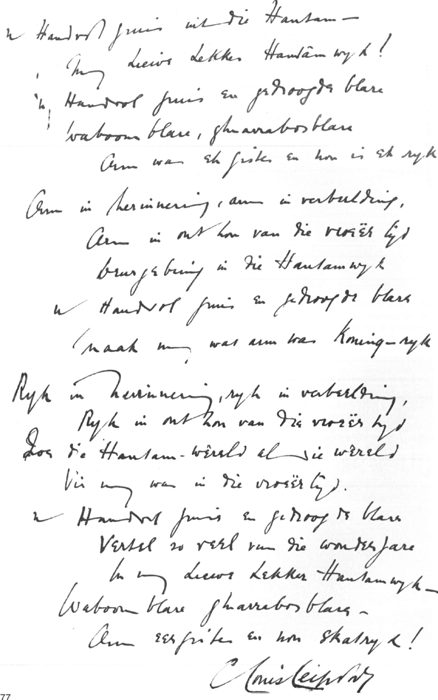 'n Handvol gruis uit die Hantam—
My liewe lekker Hantamwyk!
'n Handvol gruis en gedroogde blare
Waboomblare, ghnarrabosblare
Arm was ek gister en nou is ek ryk
Arm in herinnering, arm in verbeelding,
Arm in onthou van die vroeër tyd
Deurgebring in die Hantamwyk
'n Handvol gruis en gedroogde blare
Maak my wat arm was Koning-ryk
Ryk in herinnering, ryk in verbeelding,
Ryk in onthou van die vroeër tyd
Toe die Hantam-wêreld al die wêreld
Vir my was in die vroeër tyd.
'n Handvol gruis en gedroogde blare
Vertel so veel van die wonderjare
In my liewe lekker Hantamwyk—
Waboomblare ghnarrabosblare—
Arm eergister en nou skatryk!
C Louis Leipoldt
77